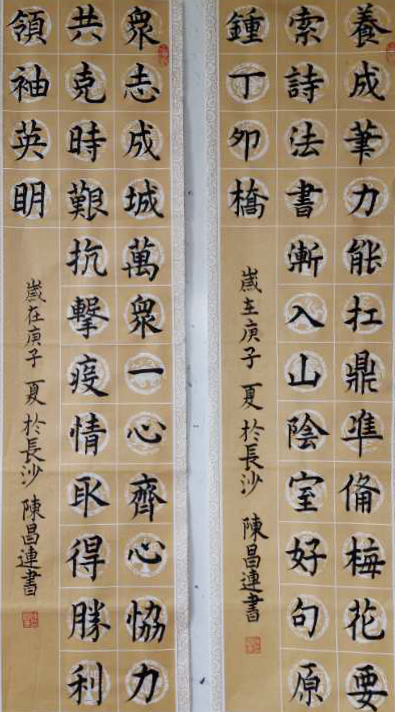 養成筆力能扛鼎凖俻梅花要
索詩法書漸入山陰室好句原
鍾丁卯橋
歲在庚子夏於長沙 陳昌連書
衆志成城萬衆一心齊心恊力
共克時艱抗擊疫情取得勝利
領袖英明
歲在庚子夏於長沙 陳昌連書